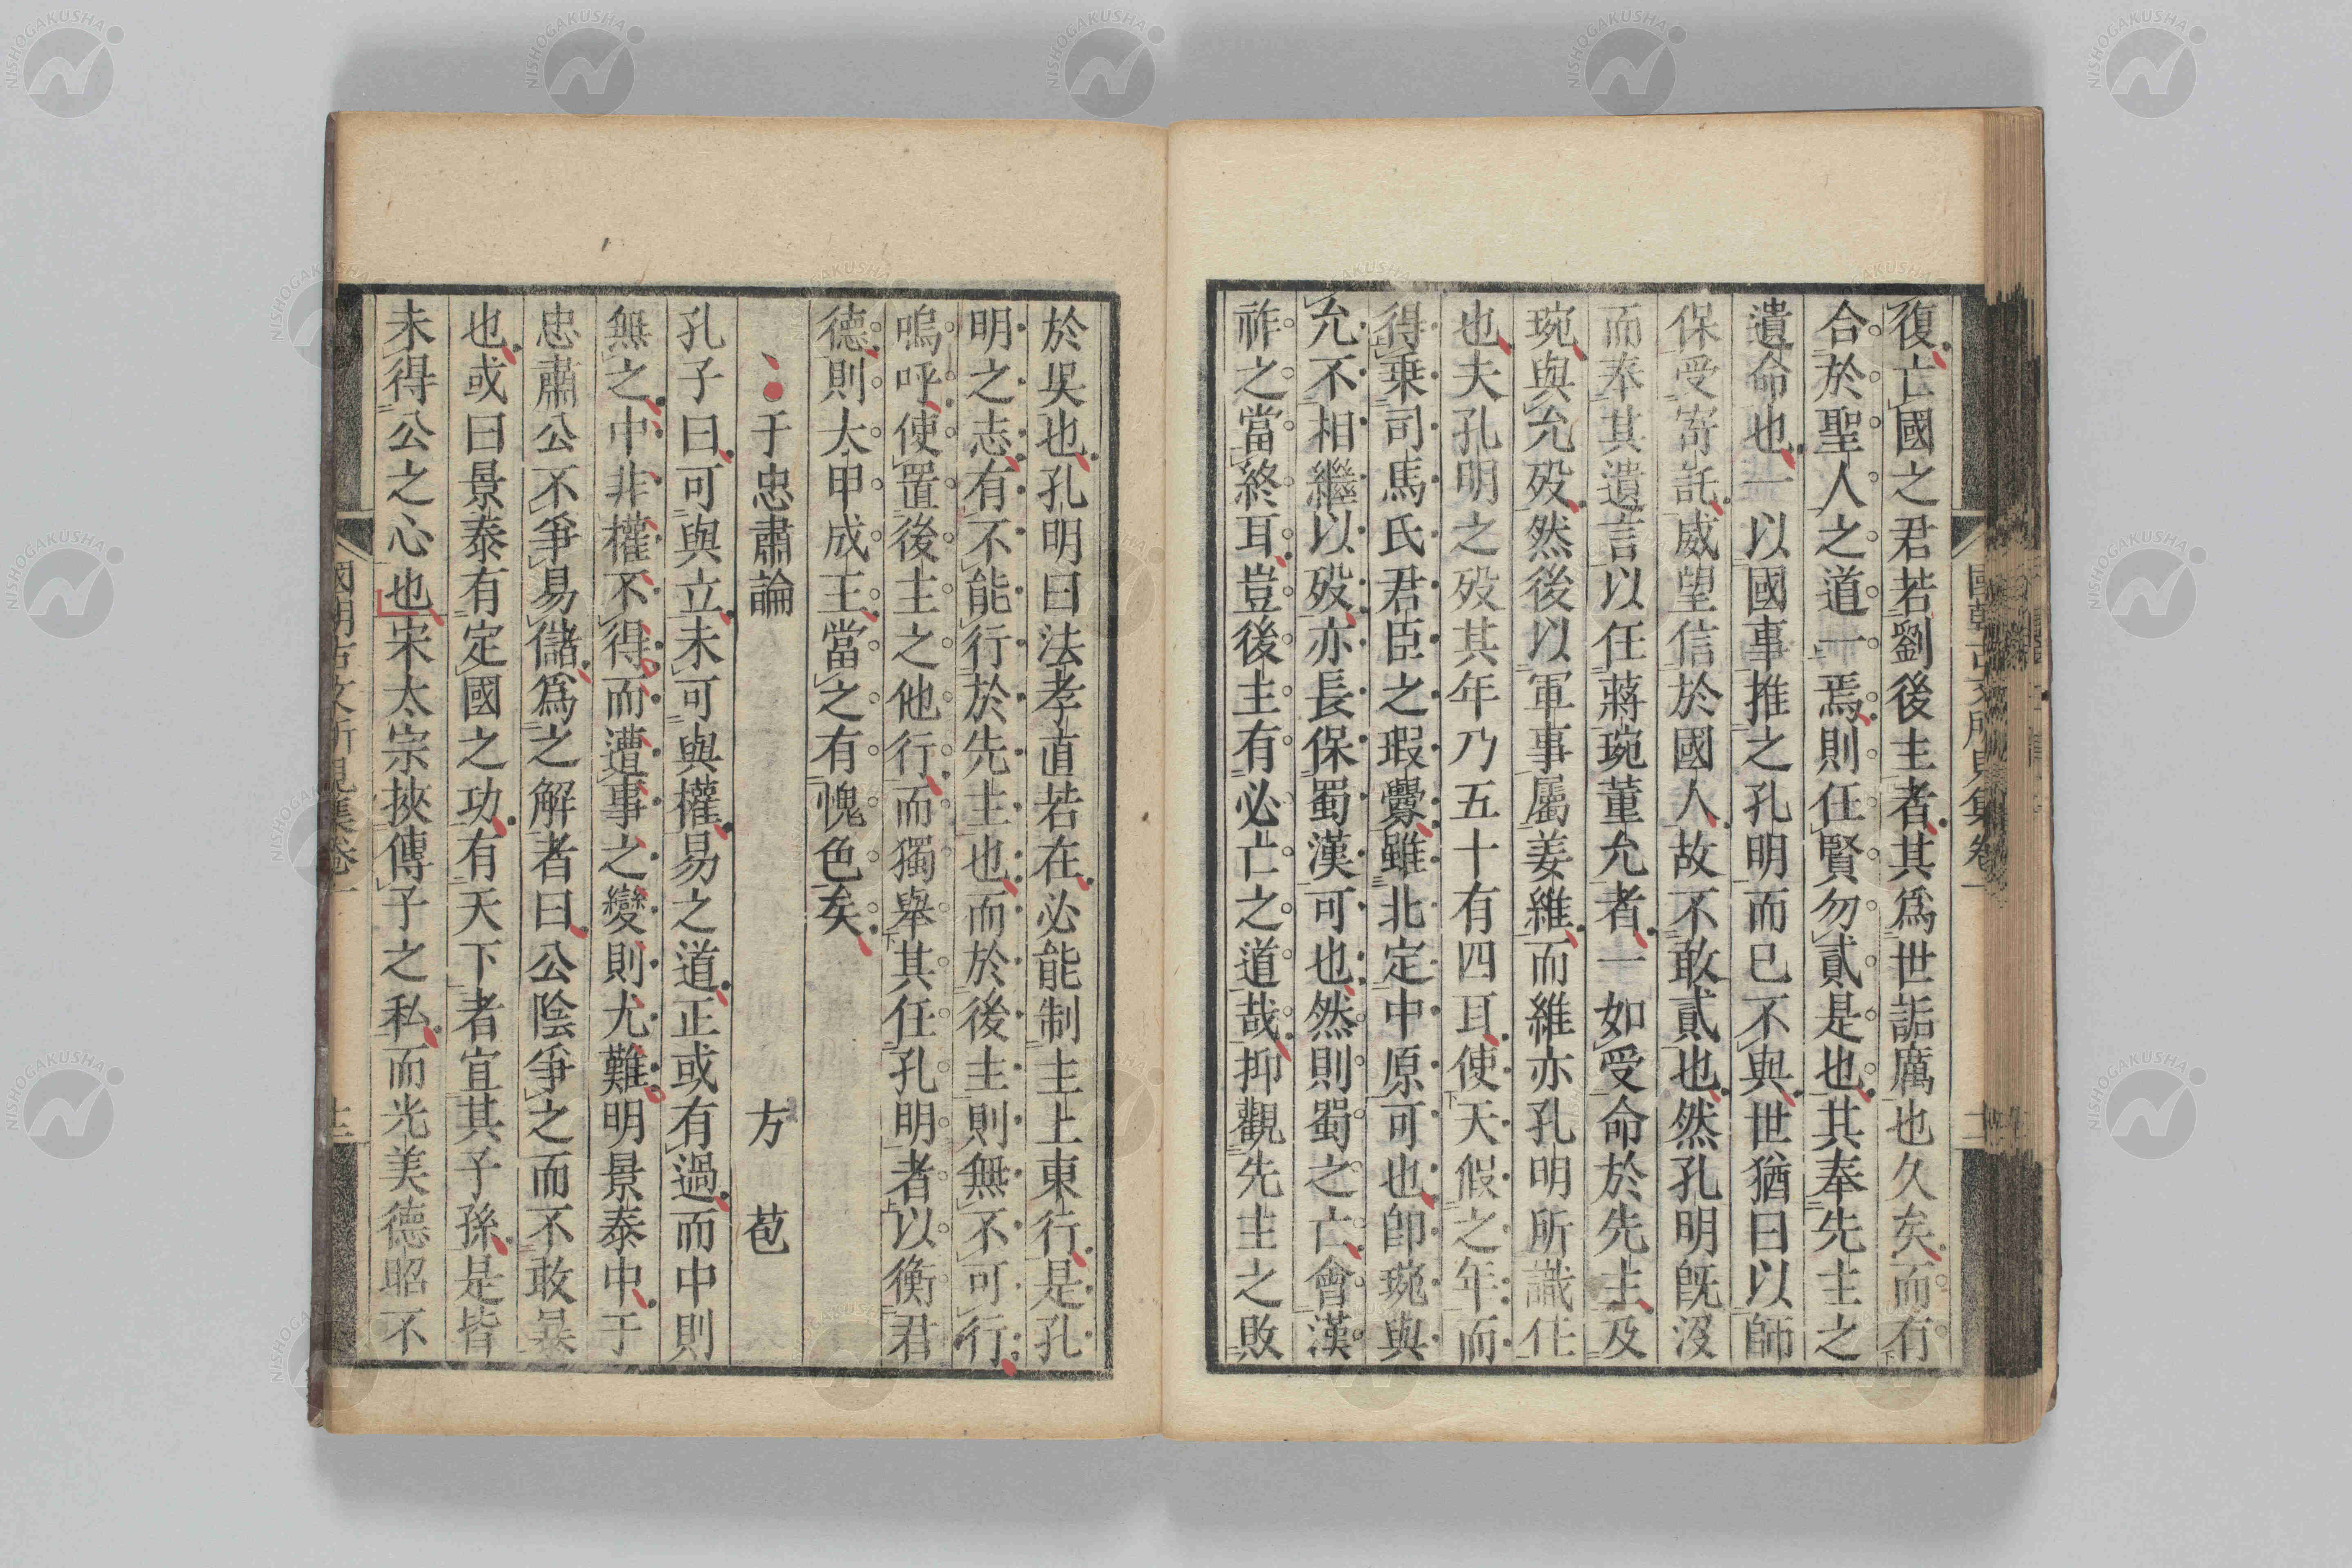 復亡國之君若劉後主者其爲世詬厲也久矣而有
合於聖人之道一焉則任賢勿貳是也其奉先主之
遺命也一以國事推之孔明而已不與世猶曰以師
保受寄託威望信於國人故不敢貳也然孔明既沒
而奉其遺言以任蔣琬董允者一如受命於先主及
琬與允歿然後以軍事屬姜維而維亦孔明所識任
也夫孔明之歿其年乃五十有四耳使天假之年而
得乗司馬氏君臣之瑕釁雖北定中原可也卽琬與
允不相繼以歿亦長保蜀漢可也然則蜀之亡會漢
祚之當終耳豈後主有必亡之道哉抑觀先主之敗
於吳也孔明曰法孝直若在必能制主上東行是孔
明之志有不能行於先主也而於後主則無不可行
嗚呼使置後主之他行而獨舉其任孔明者以衡君
德則太甲成王當之有愧色矣
于忠肅論 方苞
孔子曰可與立未可與權易之道正或有過而中則
無之中非權不得而遭事之變則尤難明景泰中于
忠肅公不爭易儲爲之解者曰公陰爭之而不敢暴
也或曰景泰有定國之功有天下者宜其子孫是皆
未得公之心也宋太宗挾傳子之私而光美德昭不
國朝古文所見集卷一
NISHOGAKUSHA